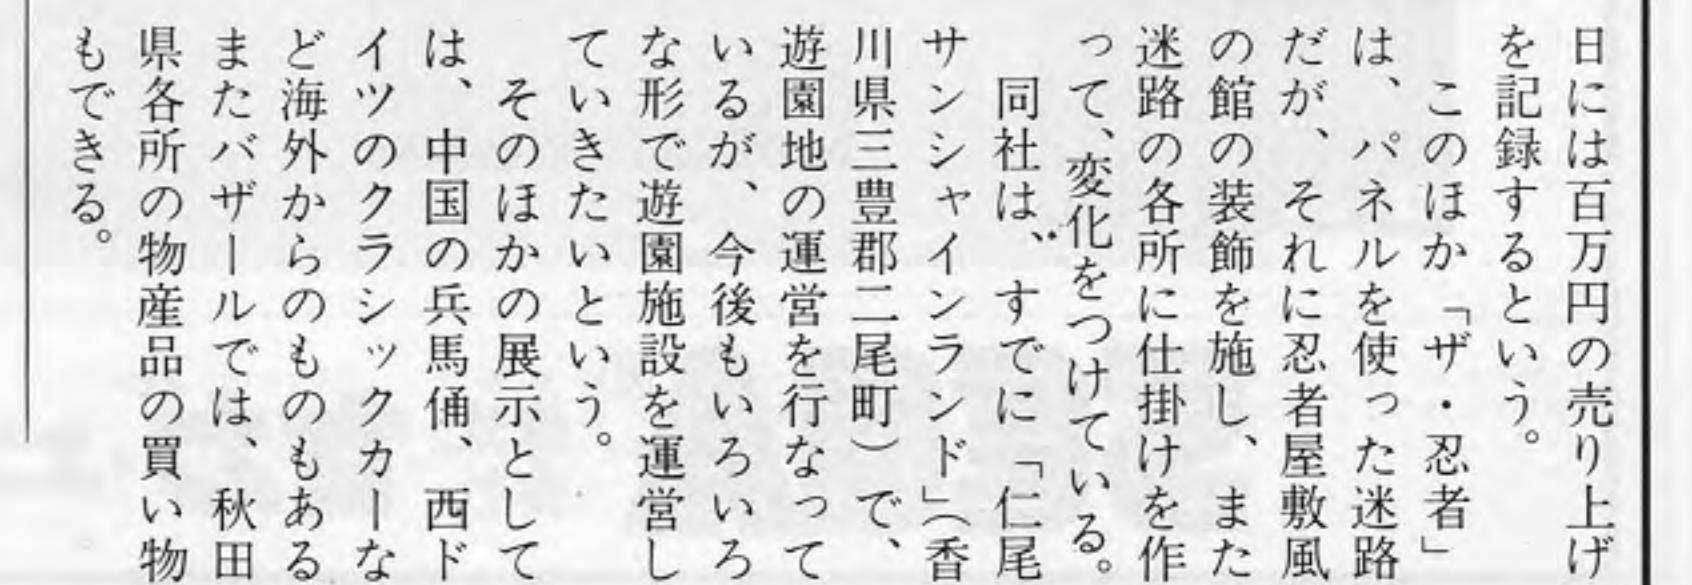 日には百万円の売り上げ
を記録するという。
このほか「ザ・忍者」
は、パネルを使った迷路
だが、それに忍者屋敷風
の館の装飾を施し、また
迷路の各所に仕掛けを作
って、変化をつけている。
同社は、すでに「仁尾
サンシャインランド」(香
川県三豊郡二尾町)で、
遊園地の運営を行なって
いるが、今後もいろいろ
な形で遊園施設を運営し
ていきたいという。
そのほかの展示として
は、中国の兵馬俑、西ド
イツのクラシックカーな
ど海外からのものもある
またバザールでは、秋田
県各所の物産品の買い物
もできる。